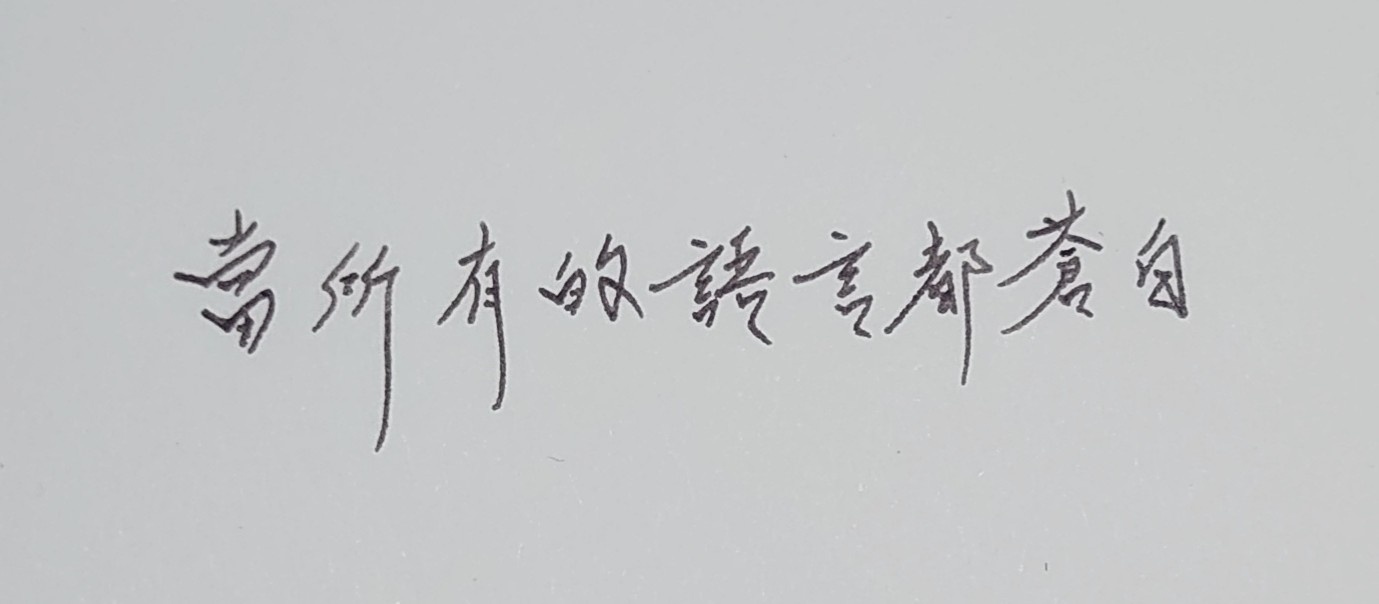 當所有的語言都蒼白